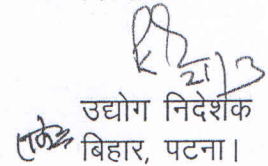 21/3
उद्योग निदेशक
बिहार, पटना।